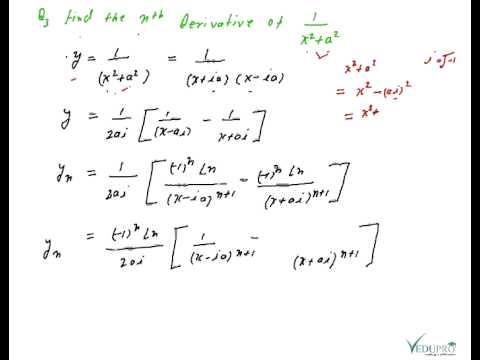 Q3 find the nth Derivative of 1/(x²+a²)
y = 1/(x²+a²) = 1/((x+ia)(x-ia))
x²+a² i=√-1
= x²-(ai)²
= x²+
y = 1/2ai [1/(x-ai) - 1/(x+ai)]
yn = 1/2ai [(-1)^n ∟n/(x-ia)^(n+1) - (-1)^n ∟n/(x+ai)^(n+1)]
yn = (-1)^n ∟n/2ai [1/(x-ia)^(n+1) - (x+ai)^(n+1)]
VEDUPRO